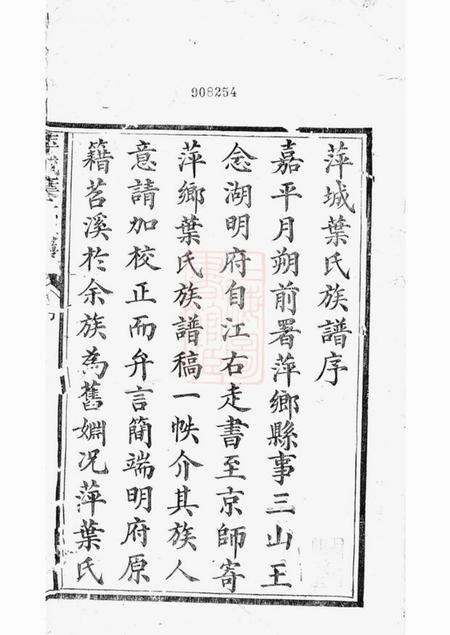 908254
萍城葉氏族譜序
嘉平月朔前署萍鄉縣事三山王
念湖明府自江右走書至京師寄
萍鄉葉氏族譜稿一帙介其族人
意請加校正而弁言簡端明府原
籍苕溪於余族為舊婣况萍葉氏